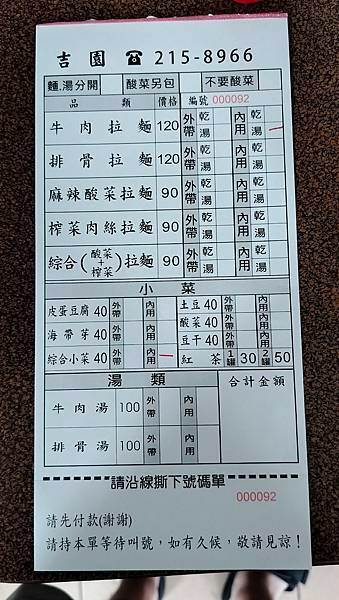 吉園 ☎ 215-8966
麵.湯分開 酸菜另包 不要酸菜
品類 價格 編號 000092
牛肉拉麵 120 外帶 乾 湯 內用 乾 湯
排骨拉麵 120 外帶 乾 湯 內用 乾 湯
麻辣酸菜拉麵 90 外帶 乾 湯 內用 乾 湯
榨菜肉絲拉麵 90 外帶 乾 湯 內用 乾 湯
綜合(酸菜+榨菜)拉麵 90 外帶 乾 湯 內用 乾 湯
小菜
皮蛋豆腐 40 外帶 內用 土豆 40 外帶 內用
酸菜 40 外帶 內用
海帶芽 40 外帶 內用 豆干 40 外帶 內用
綜合小菜 40 外帶 內用 紅茶 1罐 30 2罐 50
湯類 合計金額
牛肉湯 100 外帶 內用
排骨湯 100 外帶 內用
請沿線撕下號碼單
000092
請先付款(謝謝)
請持本單等待叫號，如有久候，敬請見諒！